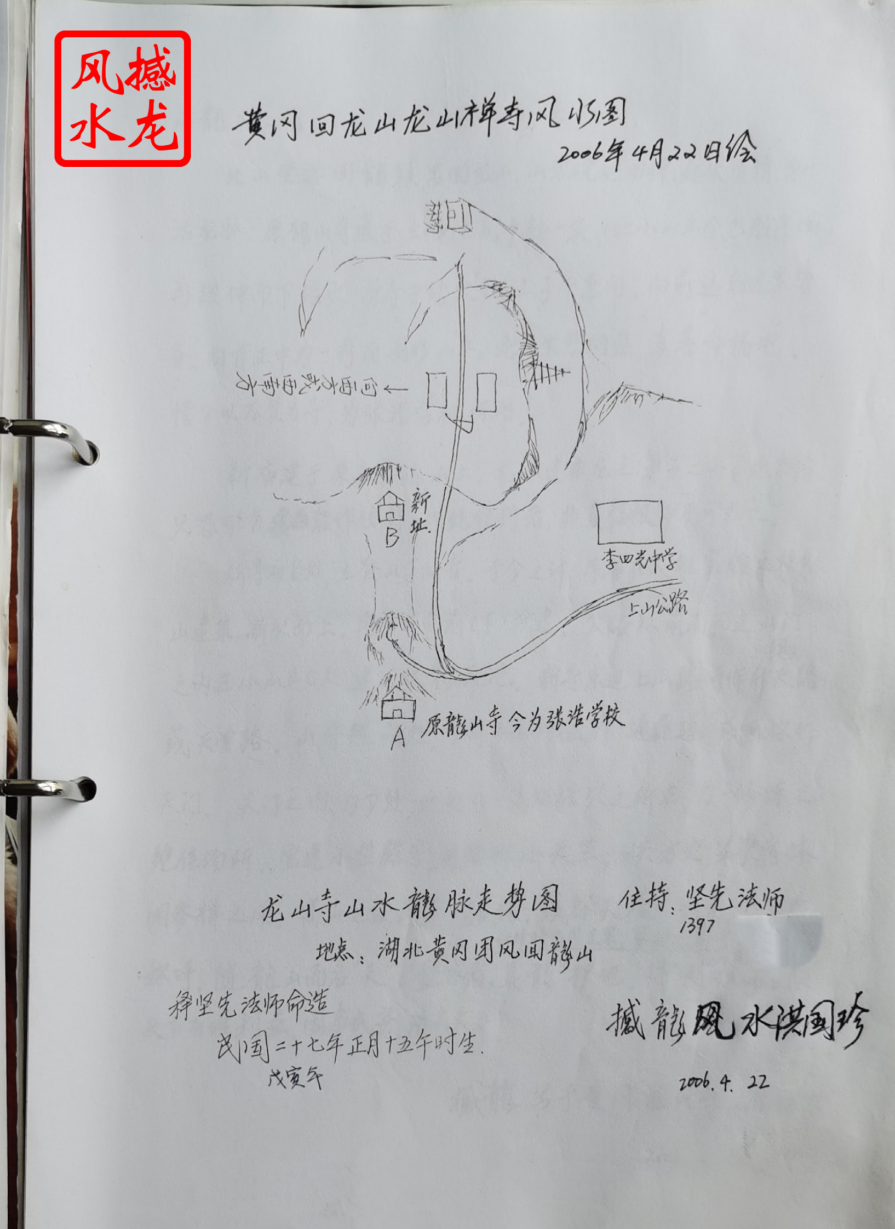 风撼
水龙
黄冈回龙山龙山禅寺风水图
2006年4月22日绘
向西大武西南方
新
址
B
李四光中学
上山公路
A
原龍山寺今为张浩学校
龙山寺山水龍脉走势图
住持：坚先法师
1397
地点：湖北黄冈团风回龍山
释坚先法师命造
民国二十七年正月十五午时生.
戊寅年
撼龍风水洪国珍
2006.4.22